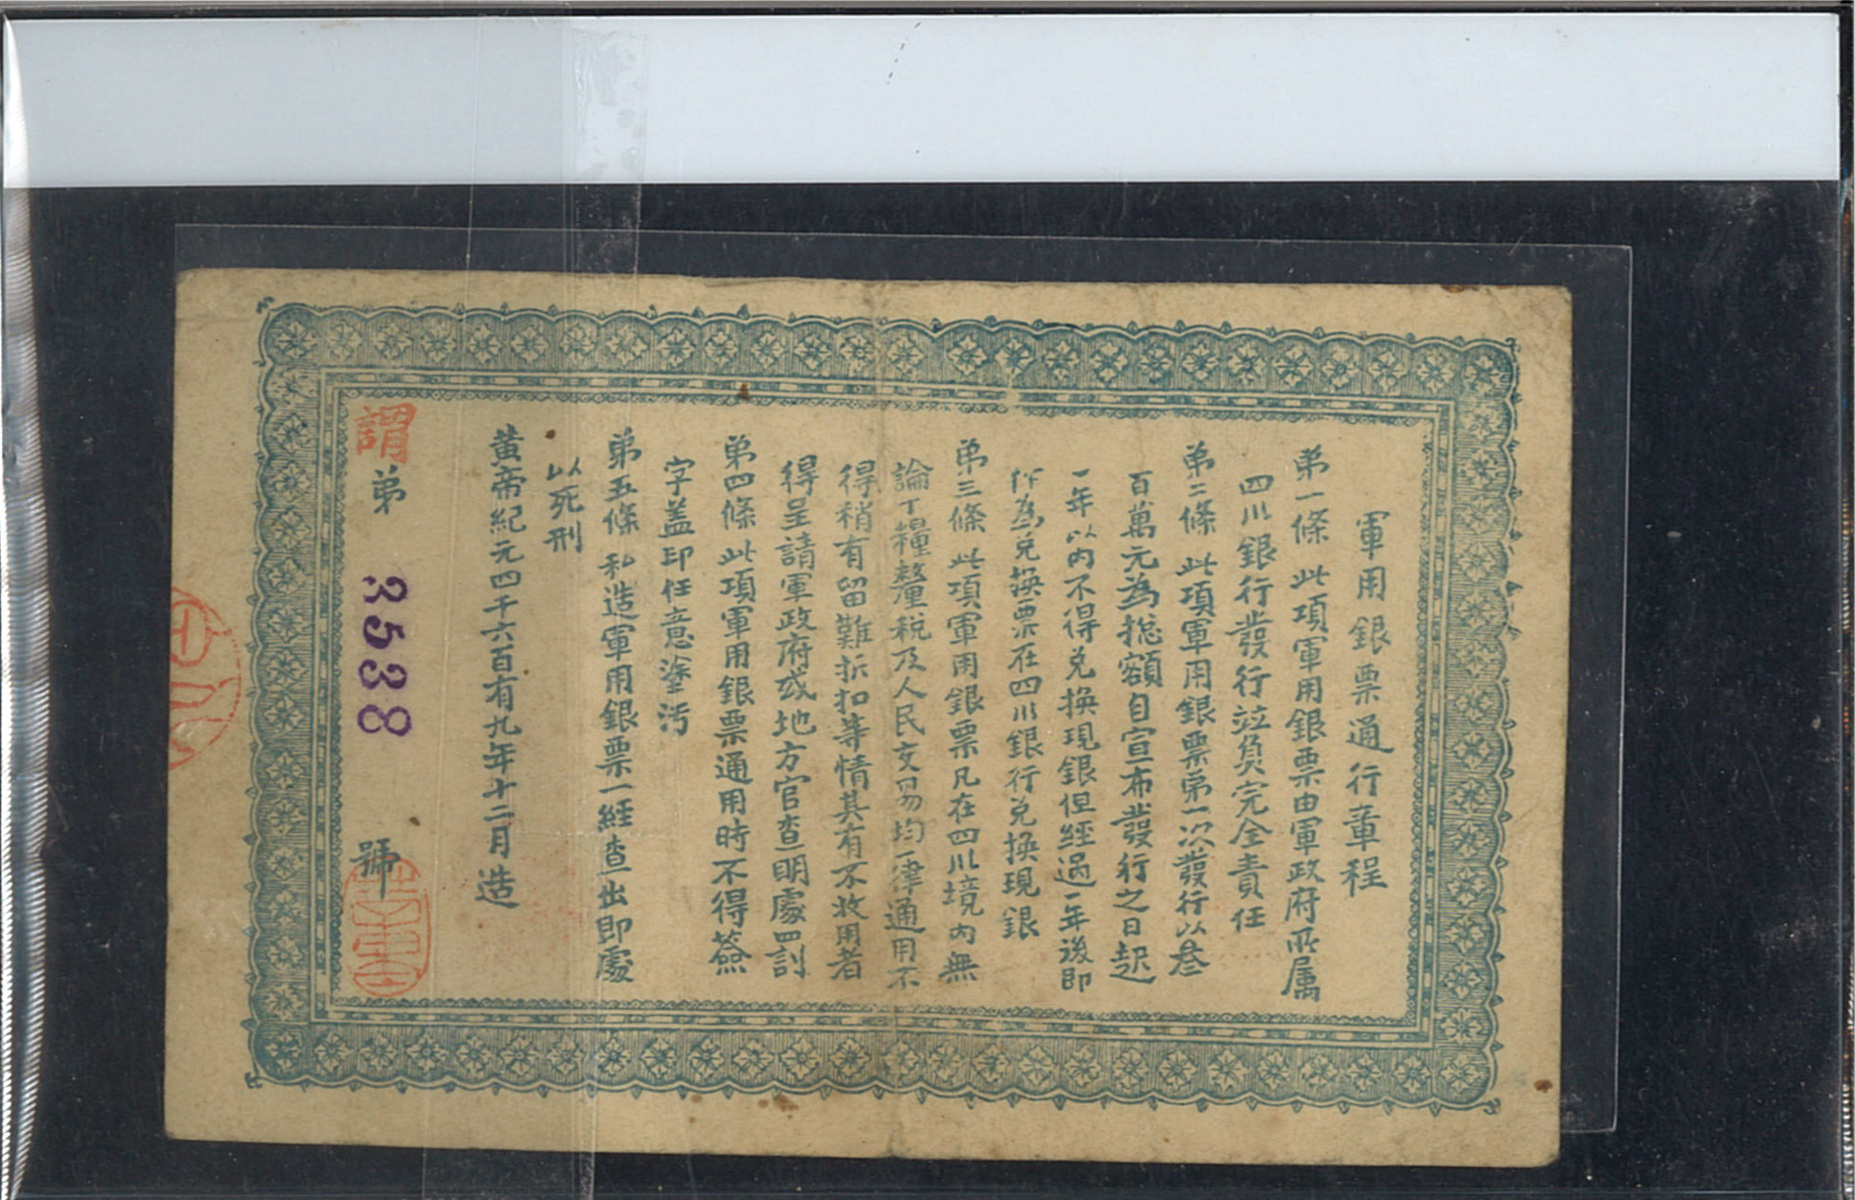 軍用銀票通行章程
第一條 此項軍用銀票由軍政府所属
四川銀行發行竝負完全責任
第二條 此項軍用銀票第一次發行以叁
百萬元為総額自宣布發行之日起
一年以内不得兌換現銀但經過一年後即
作為兌換票在四川銀行兌換現銀
第三條 此項軍用銀票凡在四川境内無
論丁糧釐税及人民交易均一律通用不
得稍有留難折扣等情其有不收用者
得呈請軍政府或地方官查明處罰
第四條 此項軍用銀票通用時不得簽
字盖印任意塗污
第五條 私造軍用銀票一經查出即處
以死刑
黃帝紀元四千六百有九年十二月造
謂 第 35538 號